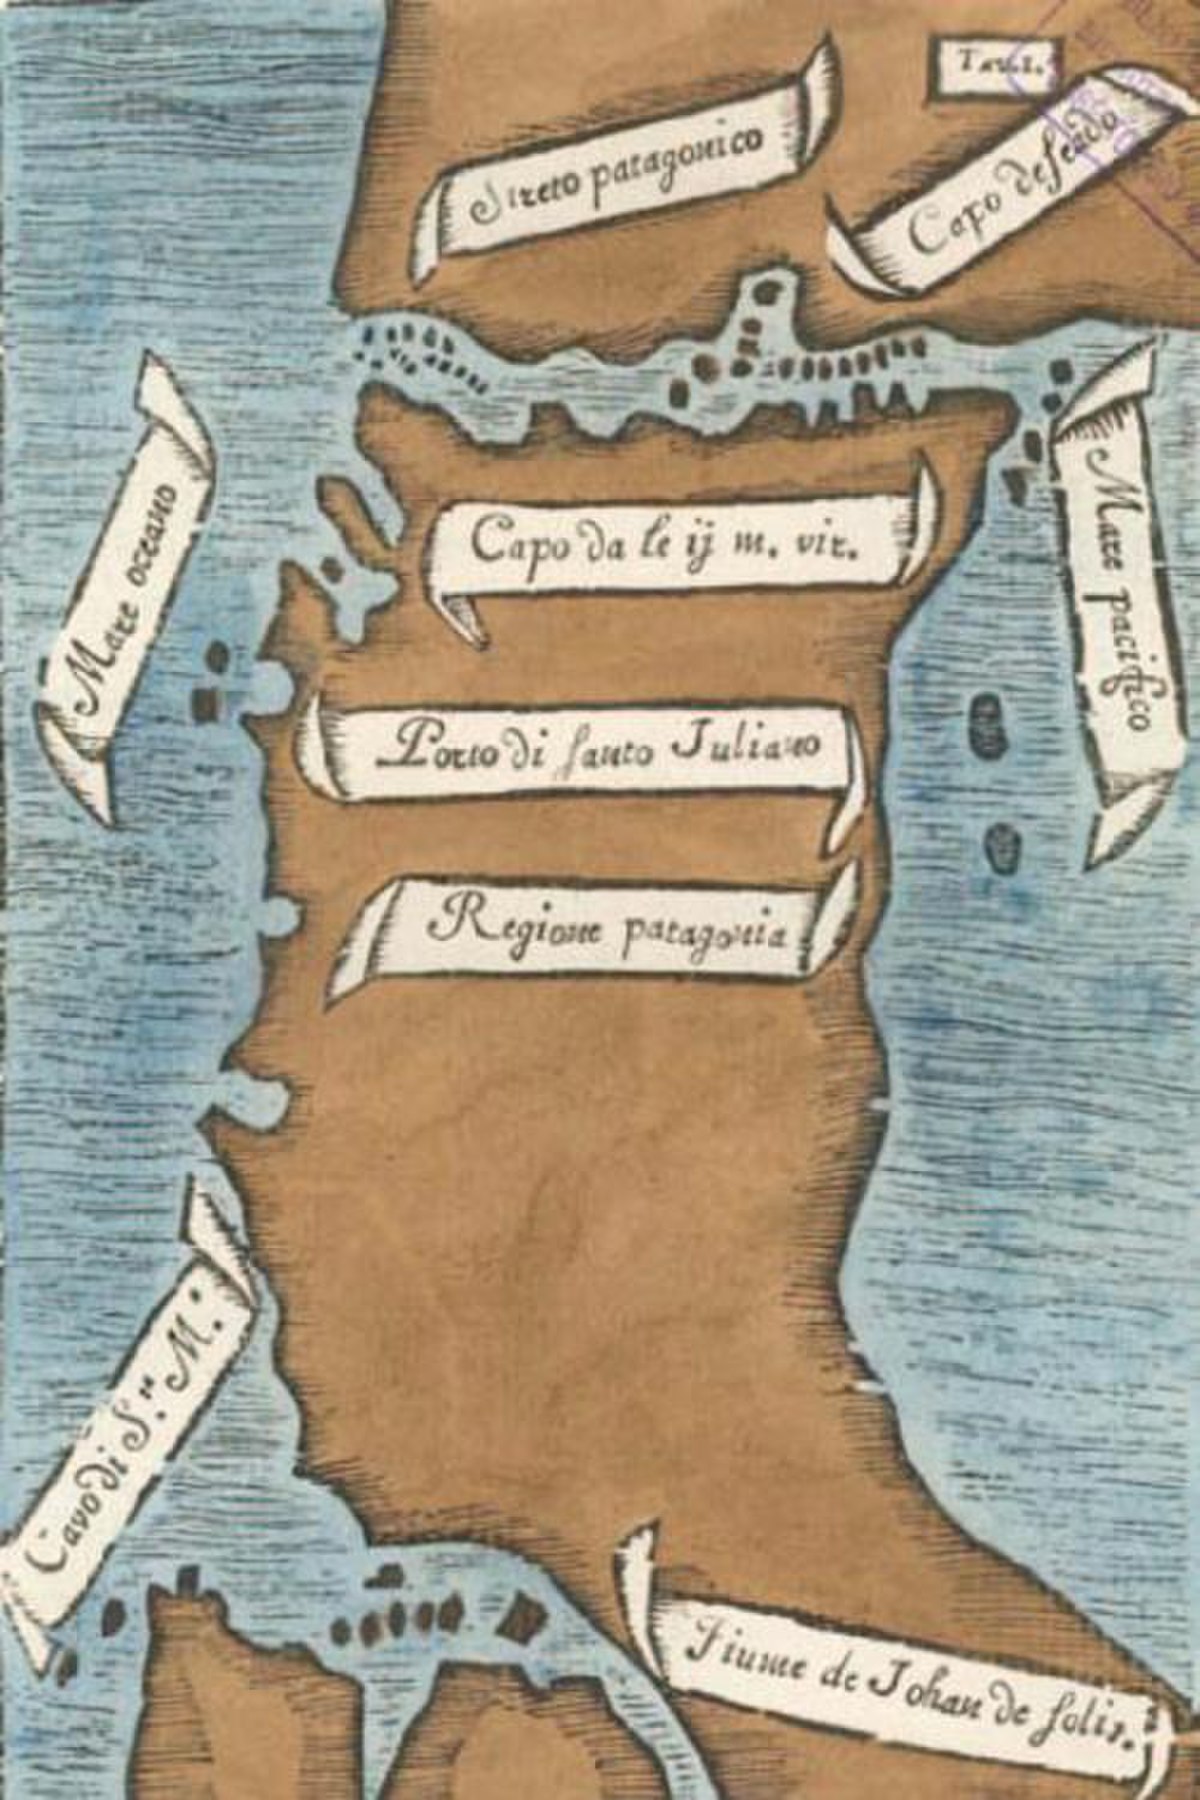 Tav. I.
Streto patagonico
Capo deseado
Mare oceano
Mare pacifico
Capo da le ij m. vir.
Porto di santo Juliano
Regione patagonia
Cavo di S.ta M.a
Fiume de Johan de solis.